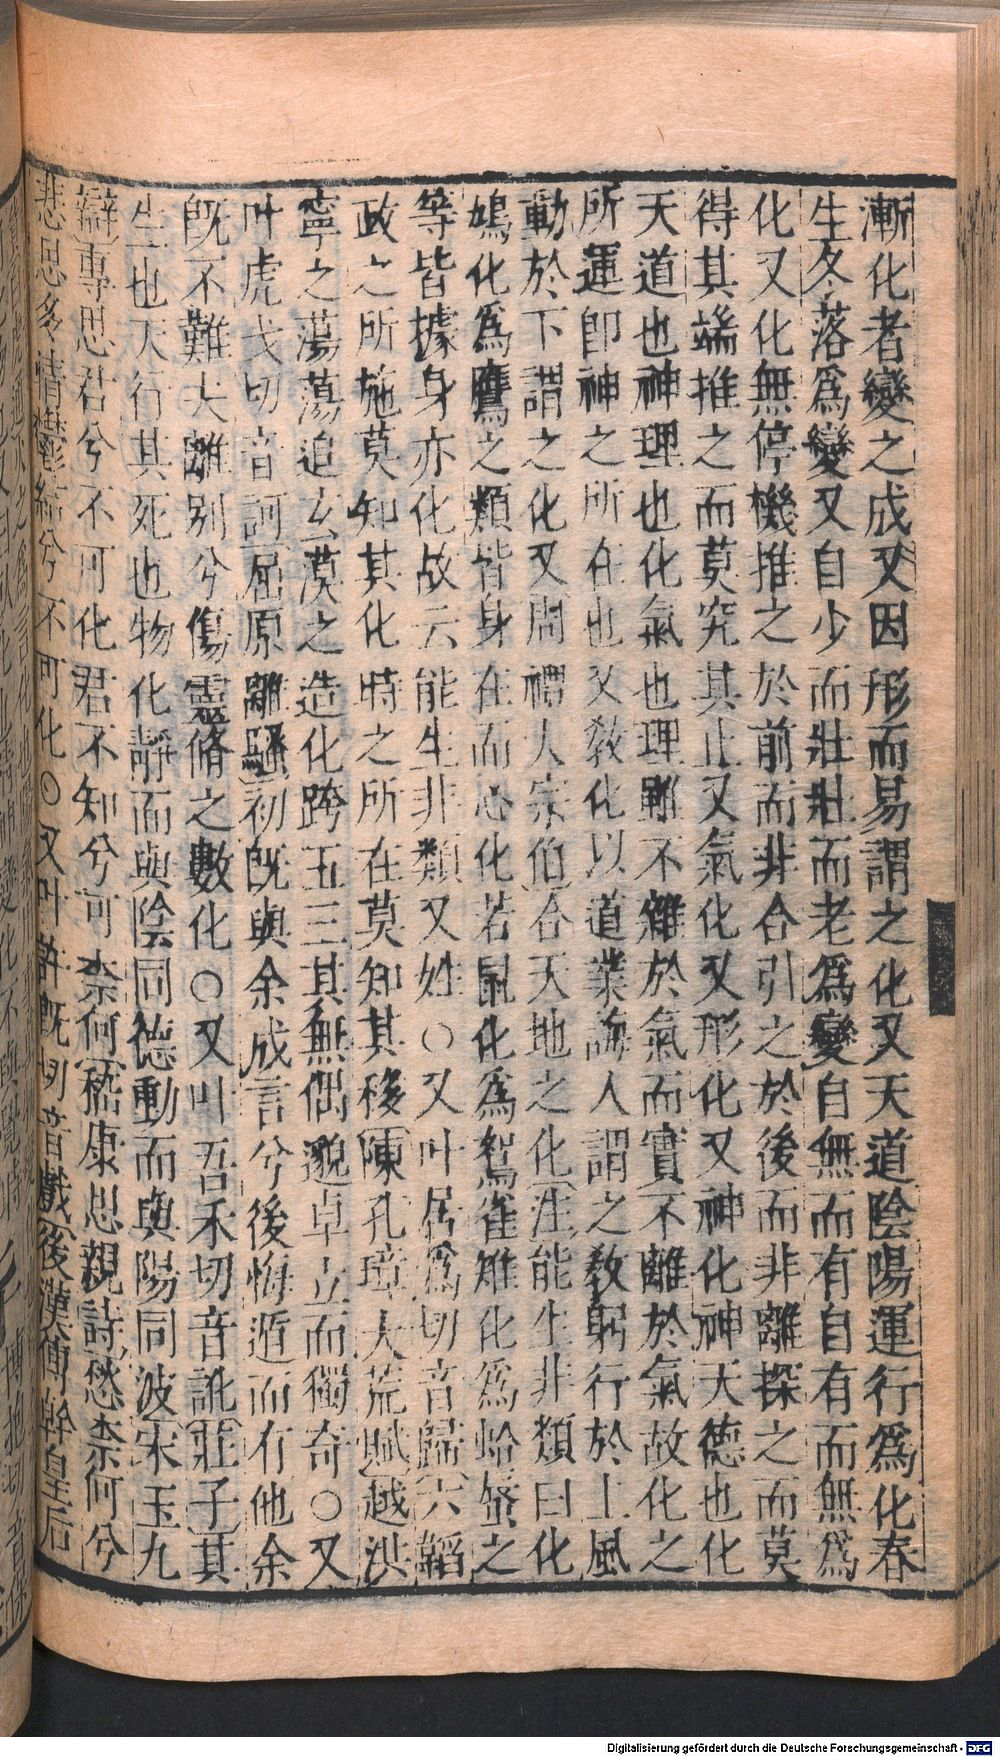 漸化者變之成又因形而易謂之化又天道陰陽運行爲化春
生冬落爲變又自少而壯壯而老爲變自無而有自有而無爲
化又化無停機推之於前而非合引之於後而非離探之而莫
得其端推之而莫究其止又氣化又形化又神化神天德也化
天道也神理也化氣也理雖不雜於氣而實不離於氣故化之
所運卽神之所在也又敎化以道業誨人謂之敎躬行於上風
動於下謂之化又周禮大宗伯合天地之化注能生非類曰化
鳩化爲鷹之類皆身在而心化若鼠化爲鴽雀雉化爲蛤蜃之
等皆據身亦化故云能生非類又姓○又叶居爲切音歸六韜
政之所施莫知其化時之所在莫知其移陳孔璋大荒賦越洪
寧之蕩蕩追玄漠之造化跨五三其無偶邈卓立而獨奇○又
叶虎戈切音訶屈原離騷初旣與余成言兮後悔遁而有他余
旣不難夫離別兮傷靈脩之數化○又叶吾禾切音訛莊子其
生也天行其死也物化靜而與陰同德動而與陽同波宋玉九
辯專思君兮不可化君不知兮可柰何嵇康思親詩愁柰何兮
悲思多情鬱結兮不可化○又叶許旣切音戲後漢傅幹皇后
Digitalisierung gefördert durch die Deutsche Forschungsgemeinschaft - DFG